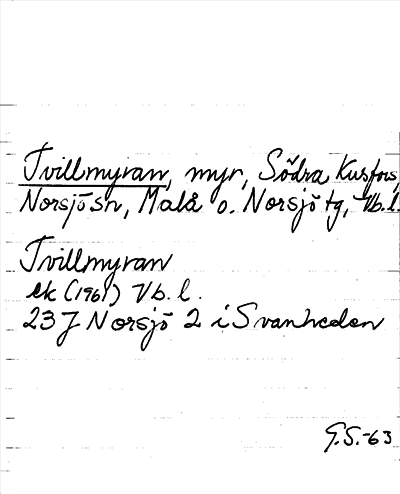 Tvillmyran, myr, Södra Kusfors,
Norsjö sn, Malå o. Norsjö tg, Vb. l.
Tvillmyran
ek (1961) Vb. l.
23 J Norsjö 2 i Svanheden
G.S.-63